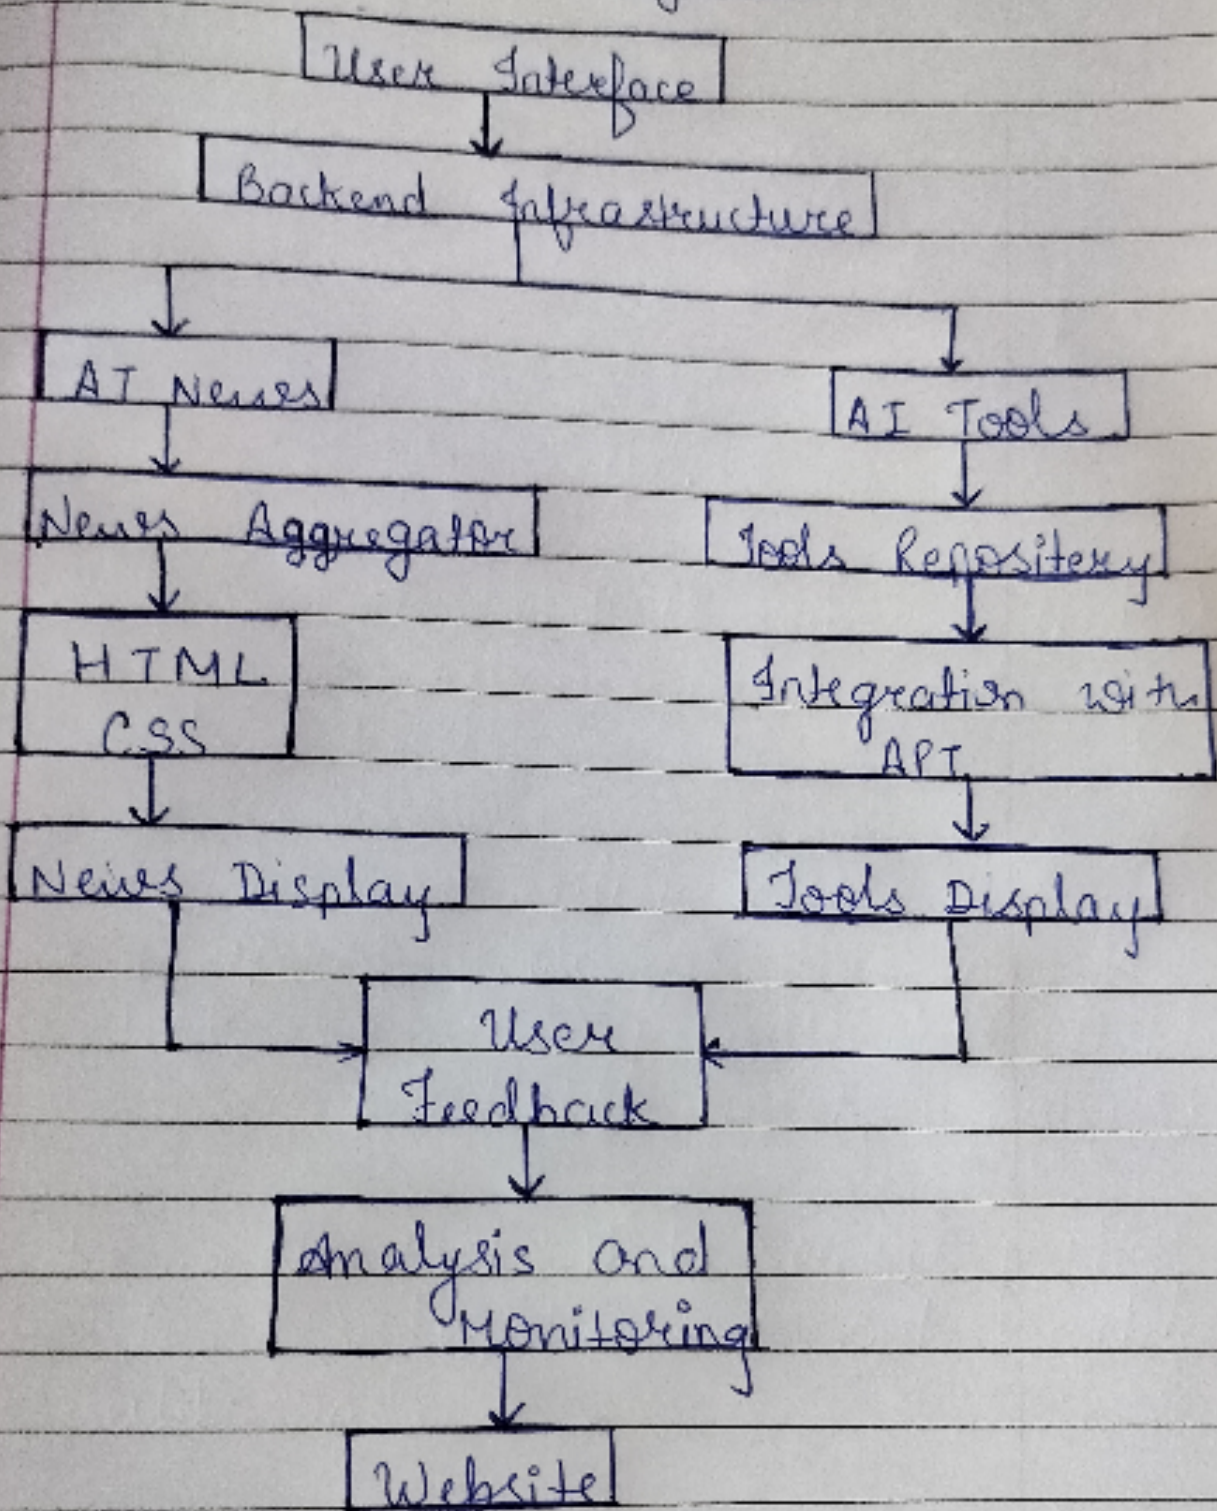 User Interface
Backend Infrastructure
AI News
AI Tools
News Aggregator
Tools Repositery
HTML
CSS
Integration with
API
News Display
Tools Display
User
Feedback
Analysis and
Monitoring
Website